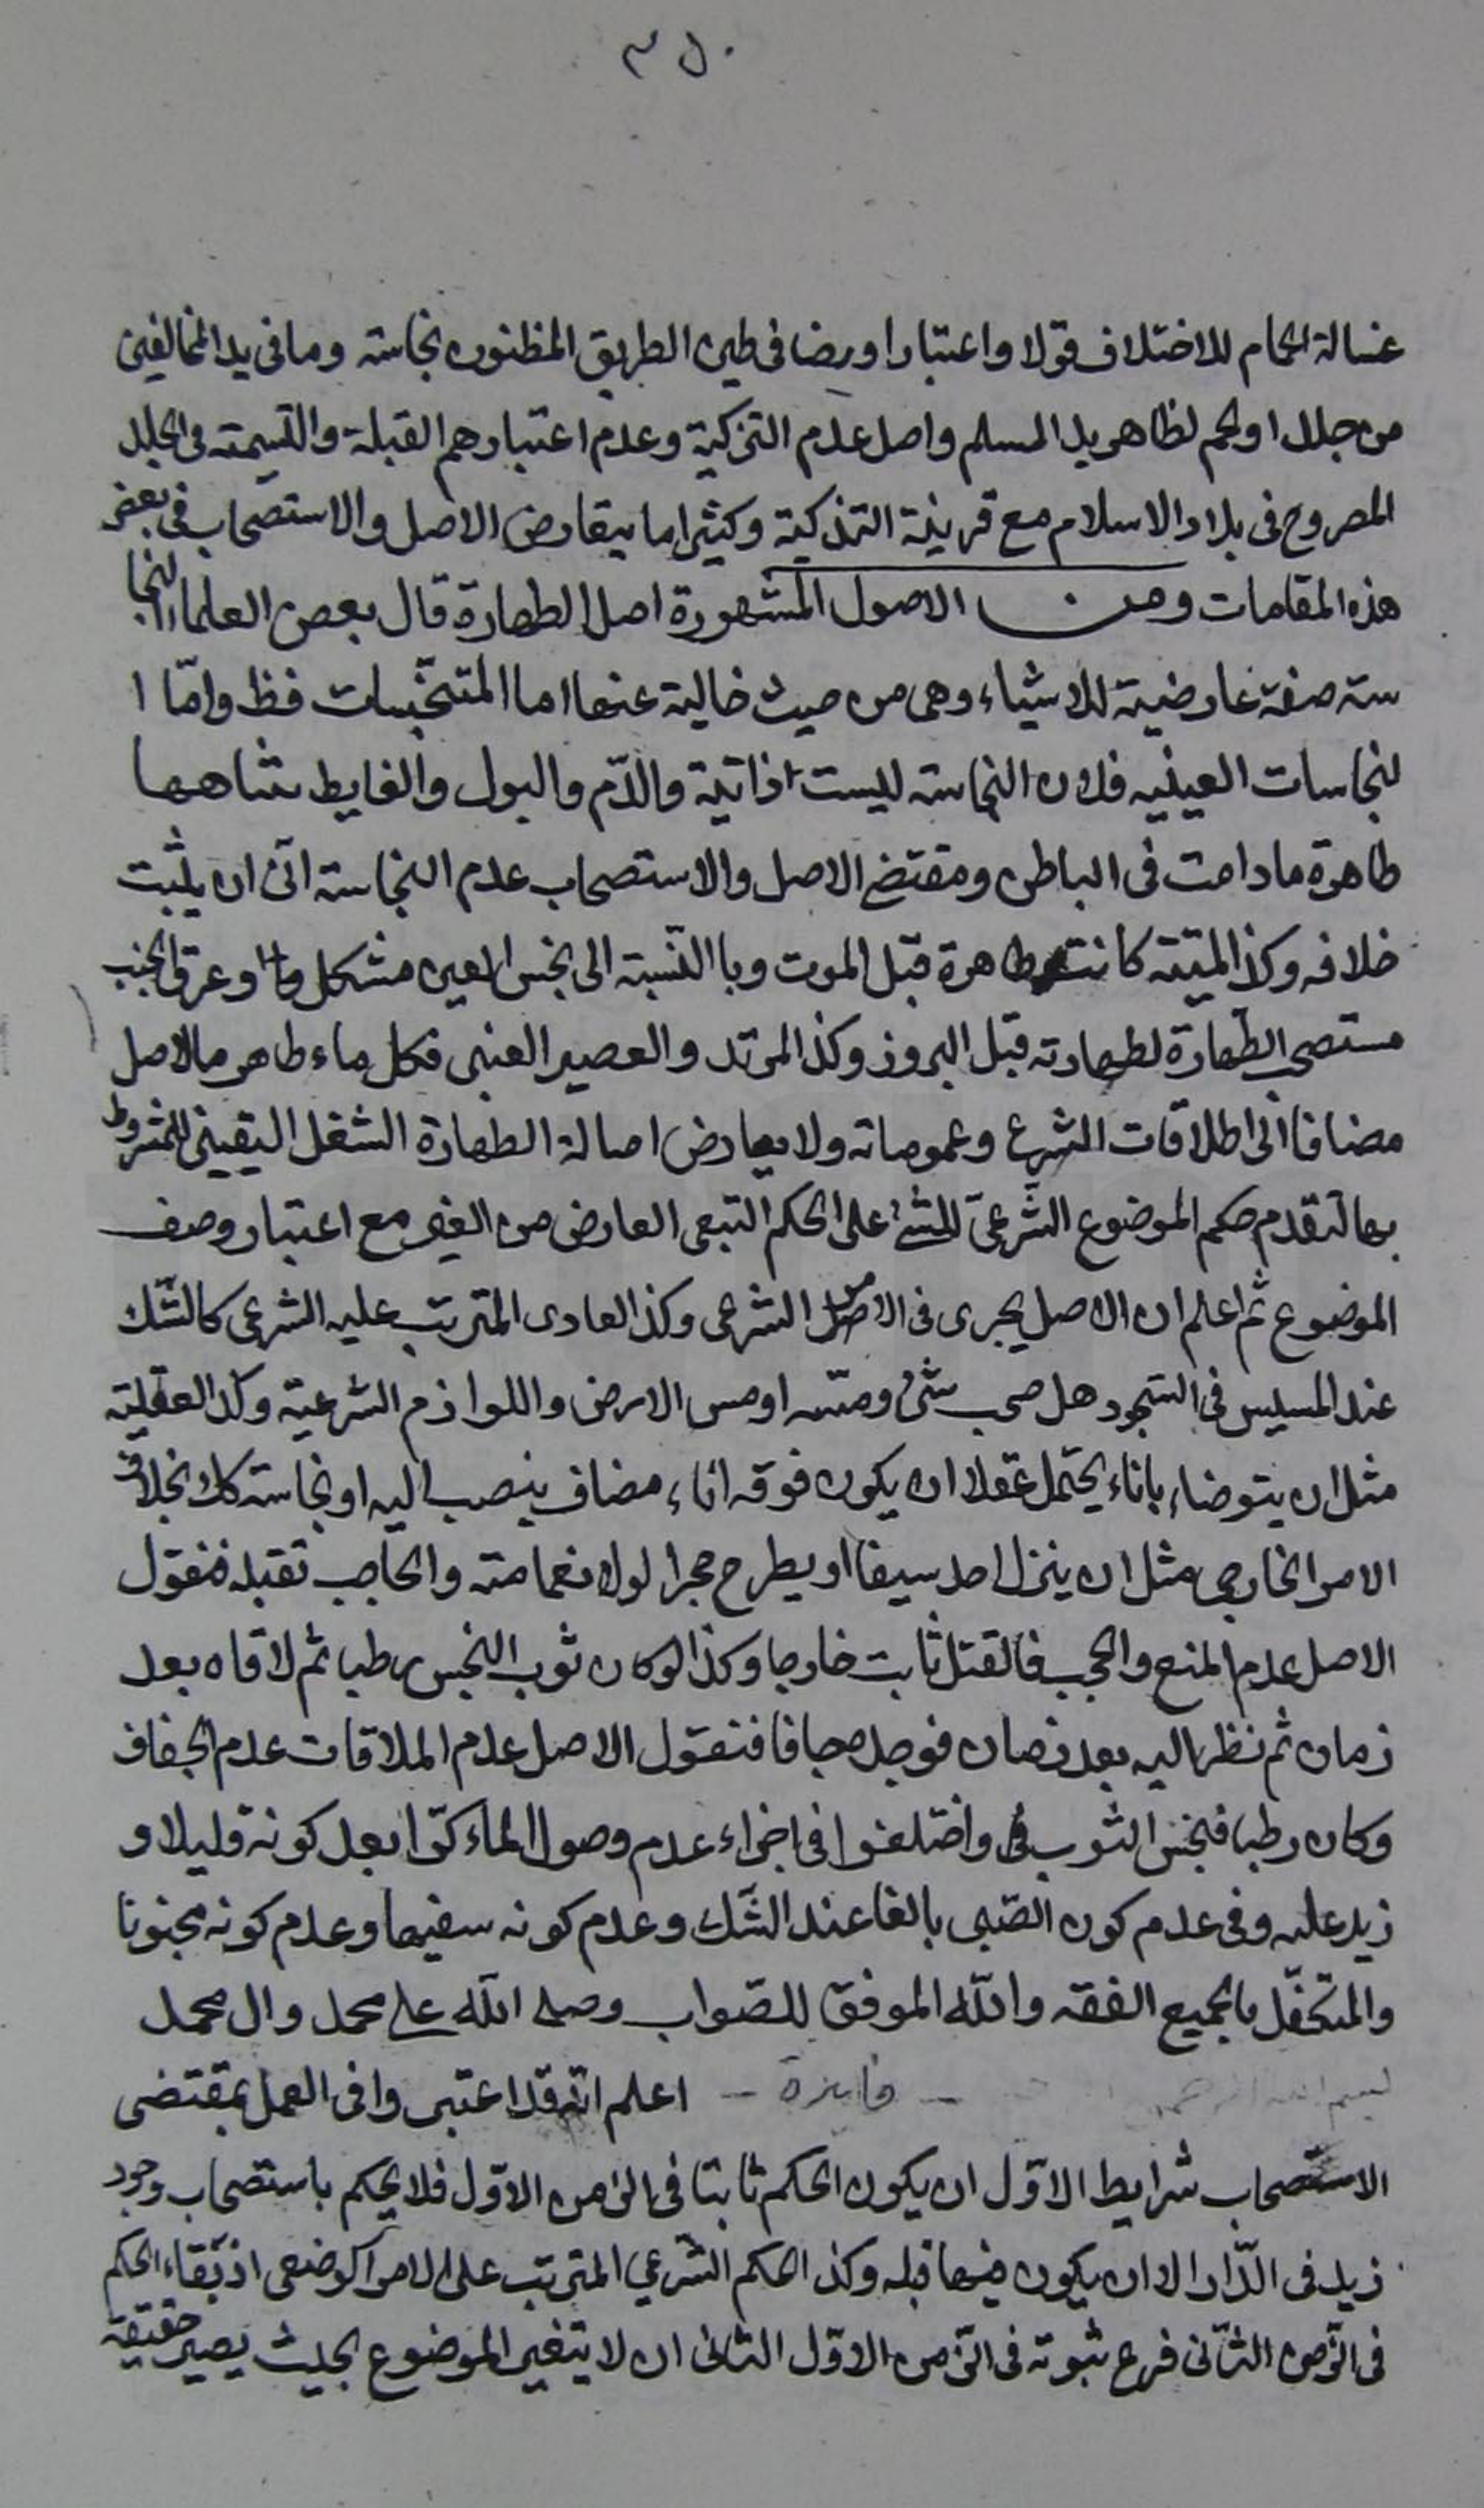 ٣٥٠
غسالة الحمام للاختلاف قولا واعتبارا وايضا فى طين الطريق المظنون نجاسته وما فى يد المخالفين
من جلد او لحم لظاهر يد المسلم واصل عدم التزكية وعدم اعتبارهم القبلة والتسمية فى الجلد
المطروح فى بلاد الاسلام مع قرينة التذكية وكثيرا ما يتعارض الاصل والاستصحاب فى بعض
هذه المقامات ومن الاصول المشهورة اصل الطهارة قال بعض العلماء النجا
سته صفة عارضية للاشياء وهى من حيث خالية عنها اما المتنجسات فظ واما ا
لنجاسات العينيه فلان النجاسته ليست ذاتية والدم والبول والغايط شاهها
طاهرة ما دامت فى الباطن ومقتضى الاصل والاستصحاب عدم النجاسته الى ان يثبت
خلافه وكذا الميتة كانت طاهرة قبل الموت وبا النسبة الى نجس العين مشكل وعرق الجنب
مستصحب الطهارة لطهارته قبل البروز وكذا المرتد والعصير العنبى فكل ماء طاهر بالاصل
مضافا الى اطلاقات الشرع وعموماته ولا يعارض اصالة الطهارة الشغل اليقينى للمشروط
بها لتقدم حكم الموضوع الشرعى على الحكم التبعى العارض من الغير مع اعتبار وصف
الموضوع ثم اعلم ان الاصل يجرى فى الامر الشرعى وكذا العادى المترتب عليه الشرعى كالشك
عند فى السجود هل حجب شئ ومسه او مس الارض واللوازم الشرعية وكذا العقلية
مثل ان يتوضاء باناء يحتمل عقلا ان يكون فوقه اناء مضاف ينصب اليه او نجاسته كك بخلاف
الامر الخارجى مثل ان ينزل احد سيفا او يطرح حجرا لولا والحاجب تقبله فنقول
الاصل عدم المنع والحجب فالقتل ثابت خارجا وكذا لو كان ثوب النجس رطبا ثم لاقاه بعد
زمان ثم نظر اليه بعد زمان فوجده جافا فنقول الاصل عدم الملاقات عدم الجفاف
وكان رطبا فنجس الثوب واختلفوا فى اجراء عدم وصول الماء كرا بعد كونه قليلا و
زيد عليه وفى عدم كون الصبى بالغا عند الشك وعدم كونه سفيها وعدم كونه مجنونا
والمتكفل بالجميع الفقه والله الموفق للصواب وصلى الله على محمد وال محمد
بسم الله الرحمن - فايدة - اعلم انه قد اعتبروا فى العمل بمقتضى
الاستصحاب شرايط الاول ان يكون الحكم ثابتا فى الزمن الاول فلا يحكم باستصحاب وجود
زيد فى الدار الا ان يكون فيها قبله وكذا الحكم الشرعى المترتب على الامر الوضعى اذ بقاء الحكم
فى الزمن الثانى فرع ثبوته فى الزمن الاول الثانى ان لا يتغير الموضوع بحيث يصير حقيقة